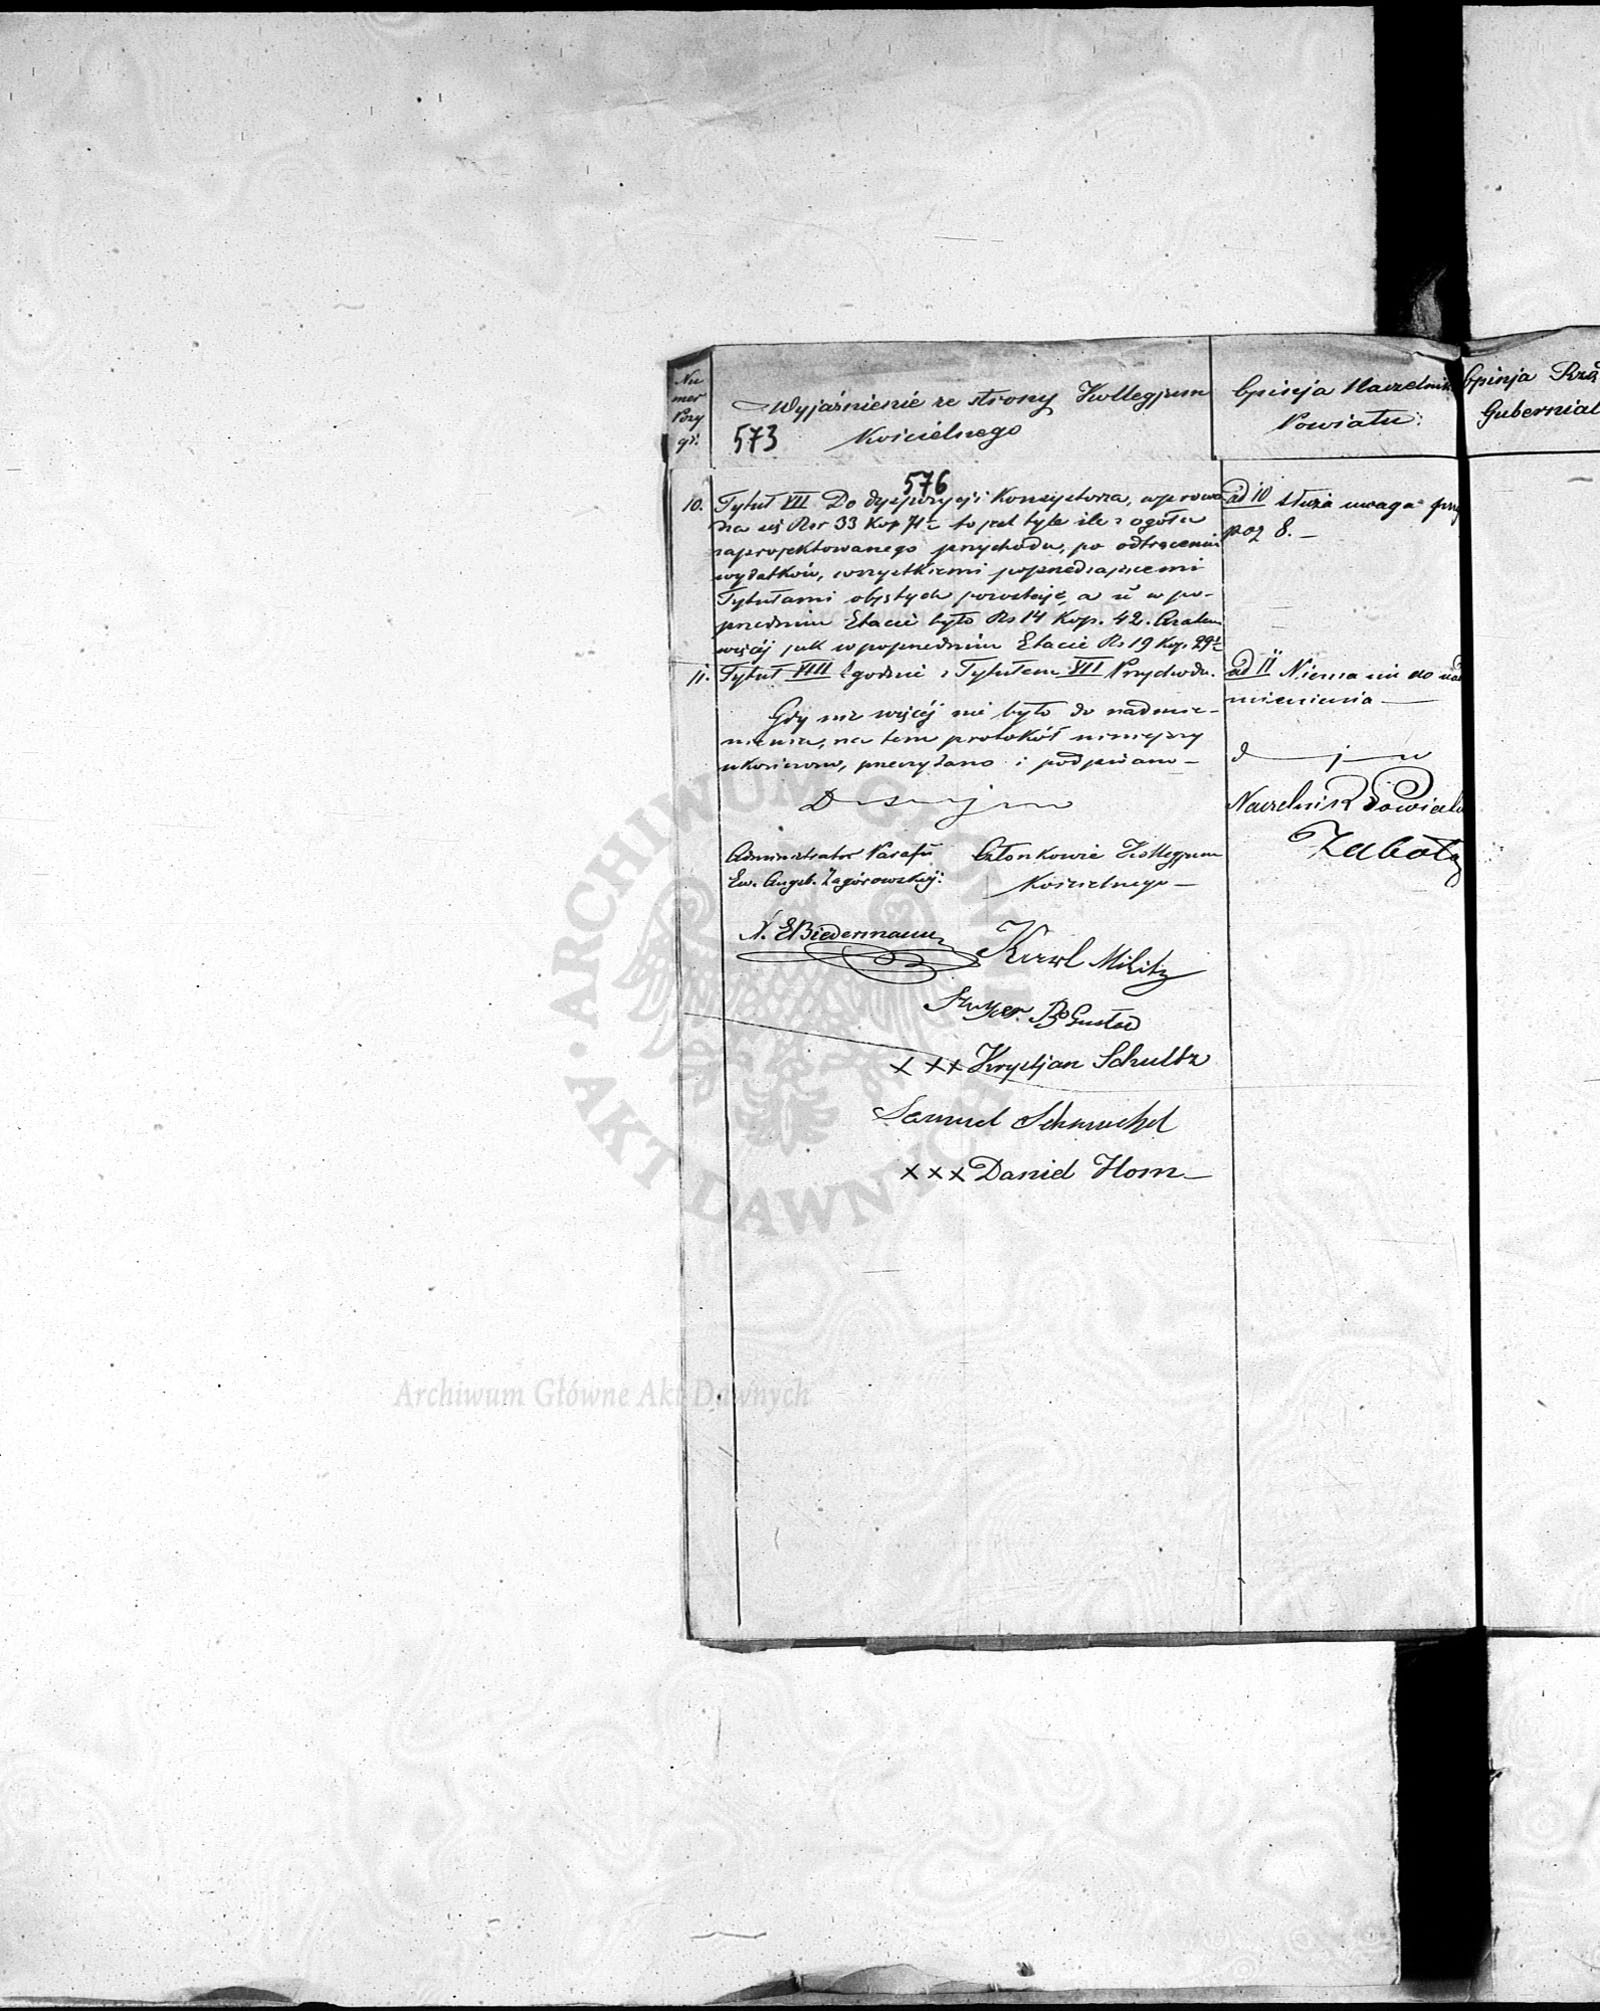 Nu
mer
Pozy
cji
Wyjaśnienie ze strony Kollegjum
Kościelnego
573
Opinja Naczelnika
Powiatu
Opinja Rzą
Gubernial
576
10. Tytuł VII Do dyspozycji Konsystorza, wprowa
na się Rsr 33 Kop 71½ to jest tyle ile z ogółu
zaprojektowanego przychodu, po odtrąceniu
wydatków, wszystkiemi poprzedzającemi
Tytułami objętych pozostaje, a iż w po-
przednim Etacie było Rs 14 Kop. 42. Zatem
więcej jak w poprzednim Etacie Rs 19 Kop. 29½
11. Tytuł VIII Zgodnie z Tytułem VII Przychodu.
Gdy nic więcej nie było do nadmie-
nienia, na tem protokół niniejszy
ukończono, przeczytano i podpisano —
Administrator Parafii
Ew. Augsb. Zagórowskiej:
Członkowie Kollegjum
Kościelnego —
X. E Biedermann
Karl Militz
Gustav
xxx Krystjan Schultz
Samuel Schmichel
xxx Daniel Horn
ad 10 służa uwaga przy
poz 8. —
ad 11 Niema nic do nad
mienienia —
Naczelnik Powiatu
ARCHIWUM GŁÓWNE AKT DAWNYCH
Archiwum Główne Akt Dawnych